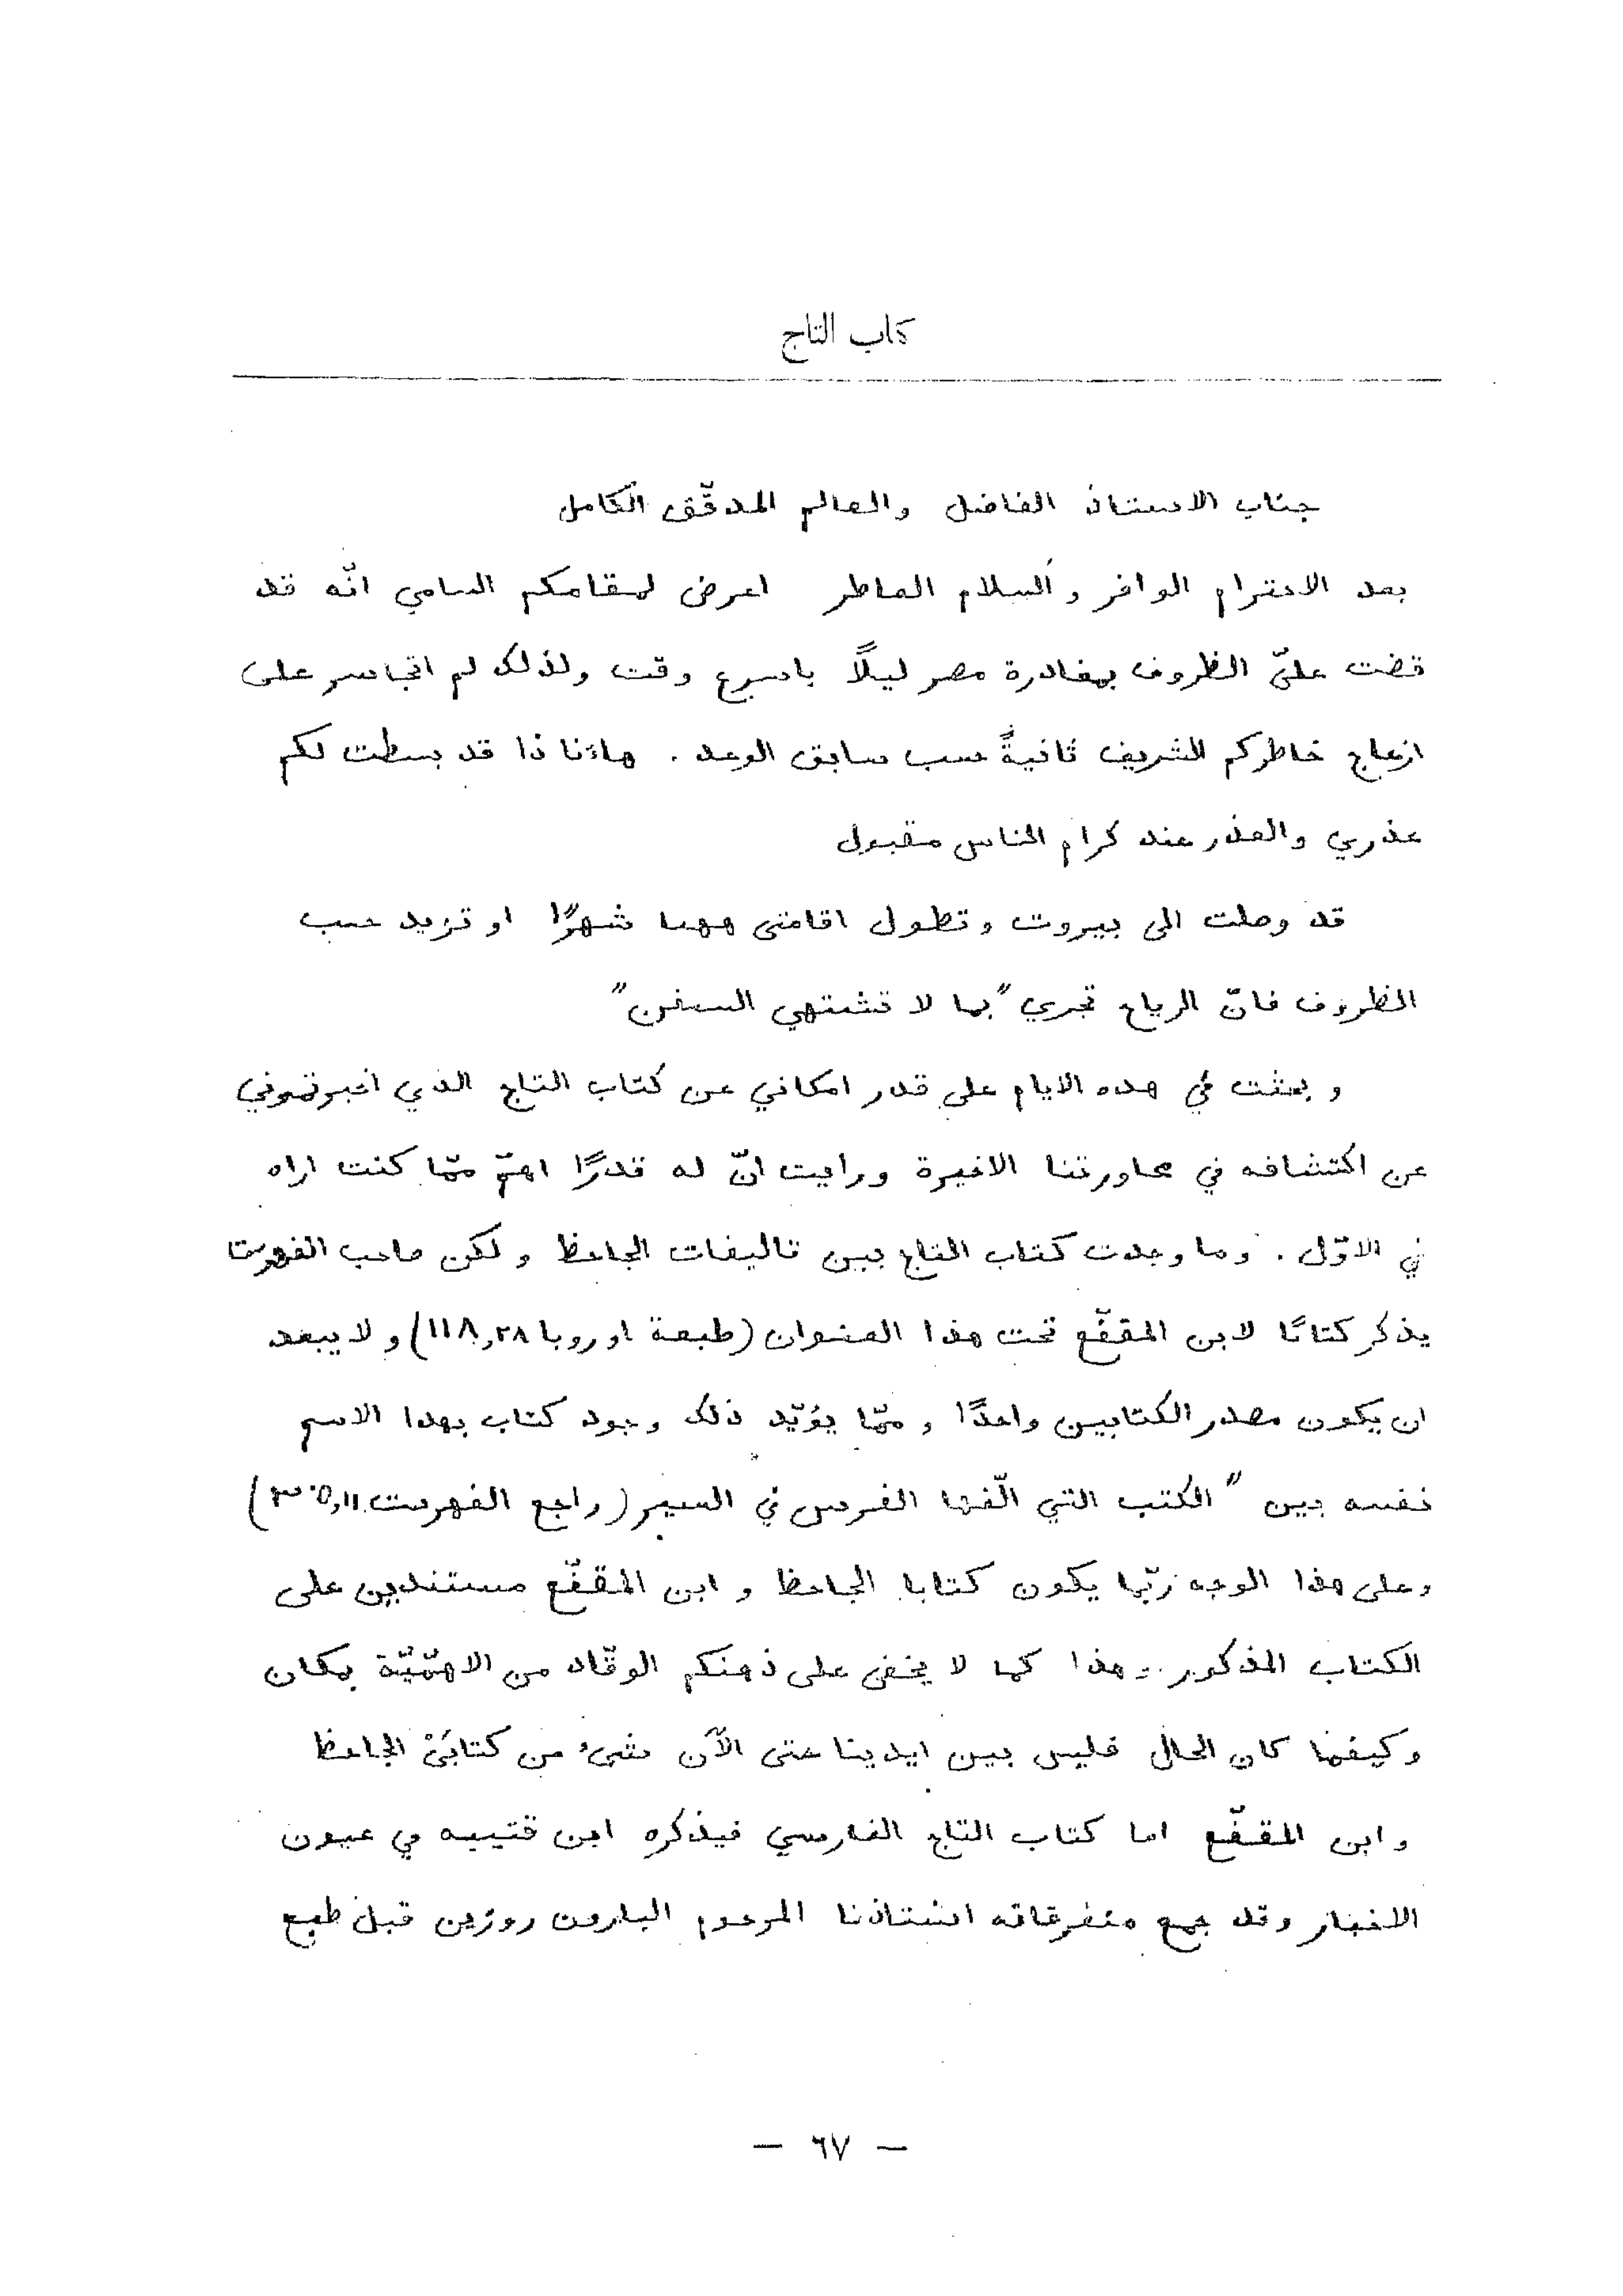 كتاب التاج
جناب الاستاذ الفاضل والعالم المدقّق الكامل
بعد الاحترام الوافر والسلام العاطر اعرض لمقامكم السامي انّه قد
قضت عليّ الظروف بمغادرة مصر ليلًا باسرع وقت ولذلك لم اتجاسر على
ازعاج خاطركم الشريف ثانيةً حسب سابق الوعد . هاءنا ذا قد بسطت لكم
عذري والعذر عند كرام الناس مقبول
قد وصلت الى بيروت وتطول اقامتي ههنا شهرًا او تزيد حسب
الظروف فانّ الرياح تجري "بما لا تشتهي السفن"
وبحثت في هذه الايام على قدر امكاني عن كتاب التاج الذي اخبرتموني
عن اكتشافه في محاورتنا الاخيرة ورايت انّ له قدرًا اهمّ ممّا كنت اراه
في الاوّل . وما وجدت كتاب التاج بين تاليفات الجاحظ ولكن صاحب الفهرست
يذكر كتابًا لابن المقفّع تحت هذا العنوان (طبعة اوروبا ١١٨,٢٨) ولا يبعد
ان يكون مصدر الكتابين واحدًا وممّا يؤيّد ذلك وجود كتاب بهذا الاسم
نفسه بين "الكتب التي الّفها الفرس في السير (راجع الفهرست ٣٠٥,١١)
وعلى هذا الوجه ربّما يكون كتابا الجاحظ وابن المقفّع مستندين على
الكتاب المذكور . وهذا كما لا يخفى على ذهنكم الوقّاد من الاهمّيّة بمكان
وكيفما كان الحال فليس بين ايدينا حتى الآن شيء من كتابَيْ الجاحظ
وابن المقفّع اما كتاب التاج الفارسي فيذكره ابن قتيبه في عيون
الاخبار وقد جمع متفرقاته استاذنا المرحوم البارون روزين قبل طبع
— ٦٧ —